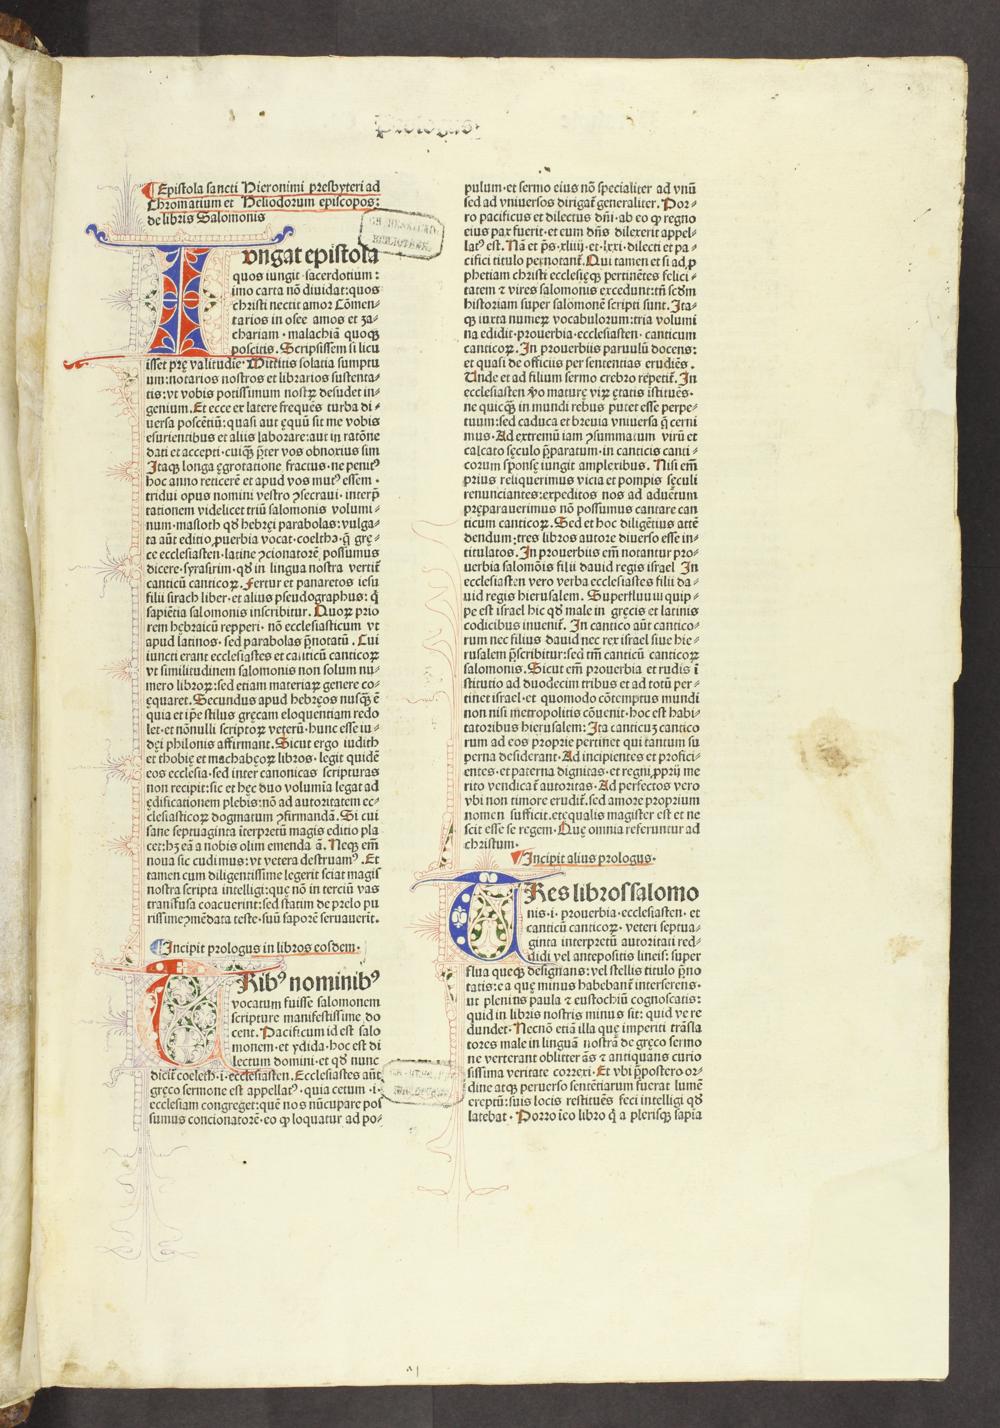 Prologus
¶Epistola sancti Hieronimi presbyteri ad
Chromatium et Heliodorum episcopos:
de libris Salomonis
Ivngat epistola
quos iungit sacerdotium:
imo carta nō diuidat:quos
christi nectit amor Cōmen⸗
tarios in osee amos et za⸗
chariam · malachiā quoqꝫ
poscitis. Scripsissem si licu
isset prę valitudie· Mittitis solatia sumptu
um:notarios nostros et librarios sustenta⸗
tis:vt vobis potissimum nostꝝ desudet in⸗
genium. Et ecce et latere frequēs turba di⸗
uersa poscētiū:quasi aut ęquū sit me vobis
esurientibus et aliis laborare:aut in ratōne
dati et accepti·cuiqꝫ p̄ter vos obnoxius sim
Itaqꝫ longa ęgrotatione fractus·ne penitꝰ
hoc anno reticerē et apud vos mutꝰ essem·
tridui opus nomini vestro ꝯsecraui·interp̄
tationem videlicet triū salomonis volumi⸗
num·masloth qď hebręi parabolas:vulga⸗
ta aūt editio ꝓuerbia vocat·coelth·a q̄ grę⸗
ce ecclesiasten·latine ꝯcionatorē possumus
dicere·syrasirim·qď in lingua nostra vertit̄
canticū canticoꝝ. Fertur et panaretos iesu
filii sirach liber·et alius pseudographus: q̄
sapiētia salomonis inscribitur. Quoꝝ prio
rem hebraicū repperi· nō ecclesiasticum vt
apud latinos· sed parabolas p̄notatū. Cui
iuncti erant ecclesiastes et canticū canticoꝝ
vt similitudinem salomonis non solum nu⸗
mero libroꝝ:sed etiam materiaꝝ genere co⸗
ęquaret. Secundus apud hebręos nusqꝫ ē
quia et ip̄e stilus gręcam eloquentiam redo
let·et nōnulli scriptoꝝ veterū·hunc esse iu⸗
dęi philonis affirmant. Sicut ergo iudith
et thobię et machabęoꝝ libros·legit quidē
eos ecclesia·sed inter canonicas scripturas
non recipit:sic et hęc duo volumīa legat ad
ędificationem plebis:nō ad autoritatem ec⸗
clesiasticoꝝ dogmatum ꝯfirmandā. Si cui
sane septuaginta īterpretū magis editio pla
cet:hꝫ eā a nobis olim emenda ā. Neqꝫ em̄
noua sic cudimus:vt vetera destruamꝰ. Et
tamen cum diligentissime legerit sciat magis
nostra scripta intelligi:que nō in terciū vas
transfusa coacuerint:sed statim de prelo pu
rissime ꝯmēdata teste·suū saporē seruauerit.
¶Incipit prologus in libros eosdem·
TRibꝰ nominibꝰ
vocatum fuisse salomonem
scripture manifestissime do
cent. Pacificum id est salo
monem·et ydida·hoc est di
lectum domini·et qď nunc
dicit̄ coeleth·i·ecclesiasten. Ecclesiastes aūt
gręco sermone est appellatꝰ·quia cetum ·i·
ecclesiam congreget:quē nos nūcupare pos
sumus concionatorē·eo ꝙ loquatur ad po⸗
pulum·et sermo eius nō specialiter ad vnū
sed ad vniuersos dirigat̄ generaliter. Por⸗
ro pacificus et dilectus dn̄i·ab eo ꝙ regno
eius pax fuerit·et eum dn̄s dilexerit appel⸗
latꝰ est. Nā et p̄s·xliiij·et·lxxi·dilecti et pa⸗
cifici titulo prenotant̄. Qui tamen et si ad ꝓ
phetiam christi ecclesięqꝫ pertinētes felici⸗
tatem ⁊ vires salomonis excedunt:tn̄ scďm
historiam super salomonē scripti sunt. Ita⸗
qꝫ iuxta numeꝝ vocabulorum:tria volumi
na edidit·prouerbia·ecclesiasten· canticum
canticoꝝ. In prouerbiis paruulū docens:
et quasi de officiis per sententias erudiēs.
Unde et ad filium sermo crebro repetit̄. In
ecclesiasten v̄o maturę viꝝ ętatis īstituēs·
ne quicqꝫ in mundi rebus putet esse perpe⸗
tuum:sed caduca et breuia vniuersa q̄ cerni
mus·Ad extremū iam ꝯsummatum virū et
calcato sęculo p̄paratum·in canticis canti⸗
corum sponsę iungit amplexibus. Nisi em̄
prius reliquerimus vicia et pompis sęculi
renunciantes:expeditos nos ad aduētum
pręparauerimus nō possumus cantare can
ticum canticoꝝ. Sed et hoc diligētius attē
dendum:tres libros autore diuerso esse in⸗
titulatos. In prouerbiis em̄ notantur pro⸗
uerbia salomōis filii dauid regis israel In
ecclesiasten vero verba ecclesiastes filii da⸗
uid regis hierusalem. Superfluum quip⸗
pe est israel hic qď male in gręcis et latinis
codicibus inuenit̄. In cantico aūt cantico⸗
rum nec filius dauid nec rex israel siue hie⸗
rusalem p̄scribitur:sed tm̄ canticū canticoꝝ
salomonis. Sicut em̄ prouerbia et rudis ī
stitutio ad duodecim tribus et ad totū per⸗
tinet israel·et quomodo cōtemptus mundi
non nisi metropolitis cōuenit·hoc est habi⸗
tatoribus hierusalem: Ita canticuꝫ cantico
rum ad eos proprie pertinet qui tantum su
perna desiderant. Ad incipientes et profici⸗
entes·et paterna dignitas·et regni ꝓprij me
rito vendicat̄ autoritas·Ad perfectos vero
vbi non timore erudit̄.sed amore proprium
nomen sufficit·et equalis magister est et ne
scit esse se regem·Que omnia referuntur ad
christum·
¶Incipit alius prologus·
TRes libros salomo
nis·i·prouerbia·ecclesiasten·et
canticū canticoꝝ·veteri septua⸗
ginta interpretū autoritati red⸗
didi vel antepositis lineis: super
flua queqꝫ designans:vel stellis titulo p̄no
tatis:ea quę minus habebant̄ interserens·
ut plenius paula ⁊ eustochiū cognoscatis:
quid in libris nostris minus sit: quid ve re
dundet·Necnō etiā illa quę imperiti trāsla
tores male in linguā nostrā de gręco sermo
ne verterant oblitter ās ⁊ antiquans curio
sissima veritate correxi·Et vbi p̄postero or⸗
dine atqꝫ peruerso sentētiarum fuerat lumē
ereptū:suis locis restituēs feci intelligi qď
latebat· Porro ī eo libro q̄ a plerisqꝫ sapia